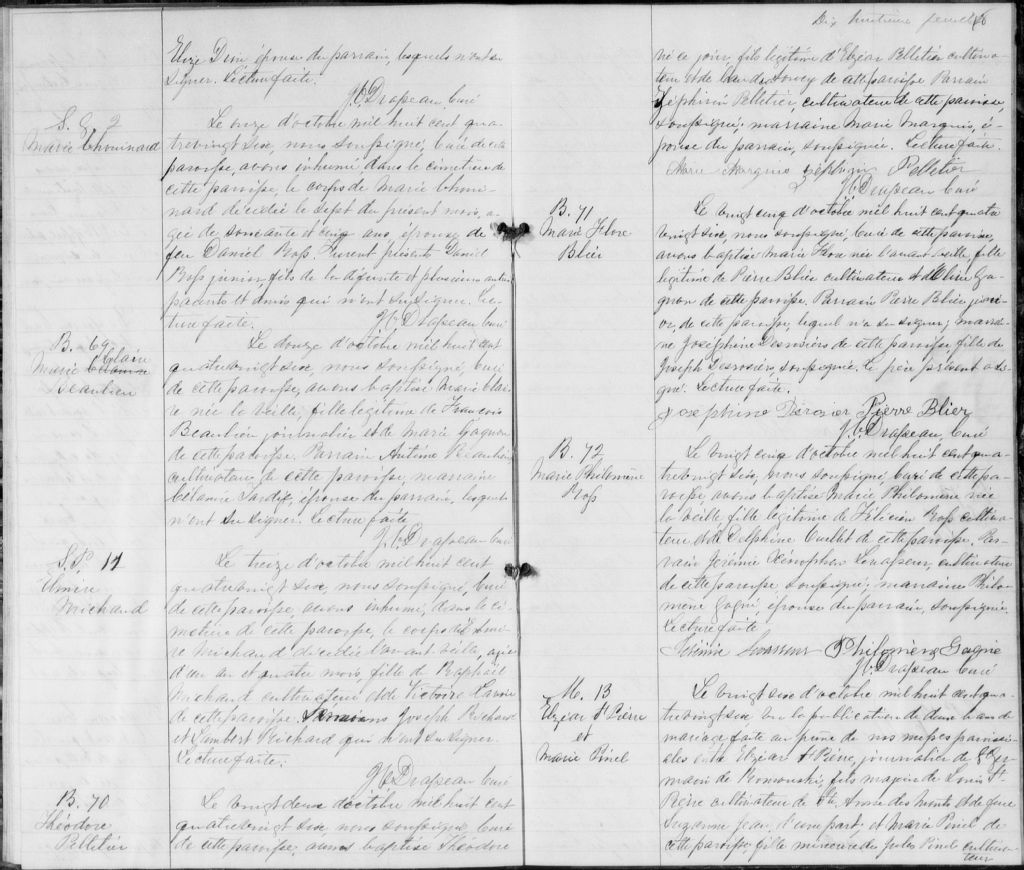 Elize Dubé épouse du parrain, lesquels n'ont su
signer. Lecture faite.
J. O. Drapeau, Curé
S. 9
Marie Chouinard
Le onze d'octobre mil huit cent qua-
trevingt six, nous soussigné, Curé de cette
paroisse, avons inhumé, dans le cimetière de
cette paroisse, le corps de Marie Choui-
nard décédée le sept du présent mois, a-
gée de soixante et cinq ans, épouse de
feu Daniel Ross. Furent présents Daniel
Ross junior, fils de la défunte et plusieurs autres
parents et amis qui n'ont su signer. Lec-
ture faite.
J. O. Drapeau, Curé
B. 69
Claire
Marie
Beaulieu
Le douze d'octobre mil huit cent
quatrevingt six, nous soussigné, Curé
de cette paroisse, avons baptisé Marie Clai-
re née la veille, fille légitime de François
Beaulieu journalier et de Marie Gagnon
de cette paroisse. Parrain Antoine Beaulieu
cultivateur de cette paroisse, marraine
Célanire Lardif, épouse du parrain, lesquels
n'ont su signer. Lecture faite
J. O. Drapeau, Curé
S.P. 14
Elmire
Michaud
Le treize d'octobre mil huit cent
quatrevingt six, nous soussigné, Curé
de cette paroisse avons inhumé, dans le ci-
metière de cette paroisse, le corps de Elmi-
re Michaud décédée l'avant veille, agée
d'un an et quatre mois, fille de Raphaël
Michaud cultivateur et de Victoire Lavoie
de cette paroisse. Témoins Joseph Richard
et Lambert Richard qui n'ont su signer.
Lecture faite.
J. O. Drapeau Curé
B. 70
Théodore
Pelletier
Le vingt deux d'octobre mil huit cent
quatrevingt six, nous soussigné, Curé
de cette paroisse, avons baptisé Théodore
Dix huitième feuillet
né ce jour fils légitime d'Elzéar Pelletier cultiva-
teur et de de cette paroisse Parrain
Zéphirin Pelletier, cultivateur de cette paroisse,
soussigné; marraine Marie Marquis, é-
pouse du parrain, soussignée. Lecture faite.
Marie Marquis Zéphirin Pelletier
J. O. Drapeau Curé
B. 71
Marie Flore
Blier
Le vingt cinq d'octobre mil huit cent quatre
vingt six, nous soussigné, Curé de cette paroisse,
avons baptisé Marie Flore née l'avant veille, fille
légitime de Pierre Blier cultivateur et d'Obéline Ga-
gnon de cette paroisse. Parrain Pierre Blier juni-
or, de cette paroisse, lequel n'a su signer; marrai-
ne Joséphine Desrosiers de cette paroisse, fille de
Joseph Desrosiers, soussignée, le père présent a si-
gné. Lecture faite.
Josephine Derosier Pierre Blier
J. O. Drapeau, Curé
B. 72
Marie Philomène
Ross
Le vingt cinq d'octobre mil huit cent qua-
trevingt six, nous soussigné, Curé de cette pa-
roisse avons baptisé Marie Philomène née
la veille, fille légitime de Félicien Ross cultiva-
teur et de Delphine Ouellet de cette paroisse. Par-
rain Jérémie Xénophon Levasseur, cultivateur
de cette paroisse soussigné; marraine Philo-
mène Gagné, épouse du parrain, soussignée.
Lecture faite
Jérémie Levasseur Philomène Gagne
J. O. Drapeau Curé
M. 13
Elzéar St Pierre
et
Marie Pinel
Le vingt six d'octobre mil huit cent qua-
trevingt six, vu la publication de deux bans de
mariage faite au prône de nos messes paroissi-
ales entre Elzéar St Pierre, journalier de St Ger-
main de Rimouski, fils majeur de Louis St
Pierre cultivateur de Ste Anne des Monts et de feue
Suzanne Jean, d'une part; et Marie Pinel de
cette paroisse, fille mineure de Jules Pinel cultiva-
teur